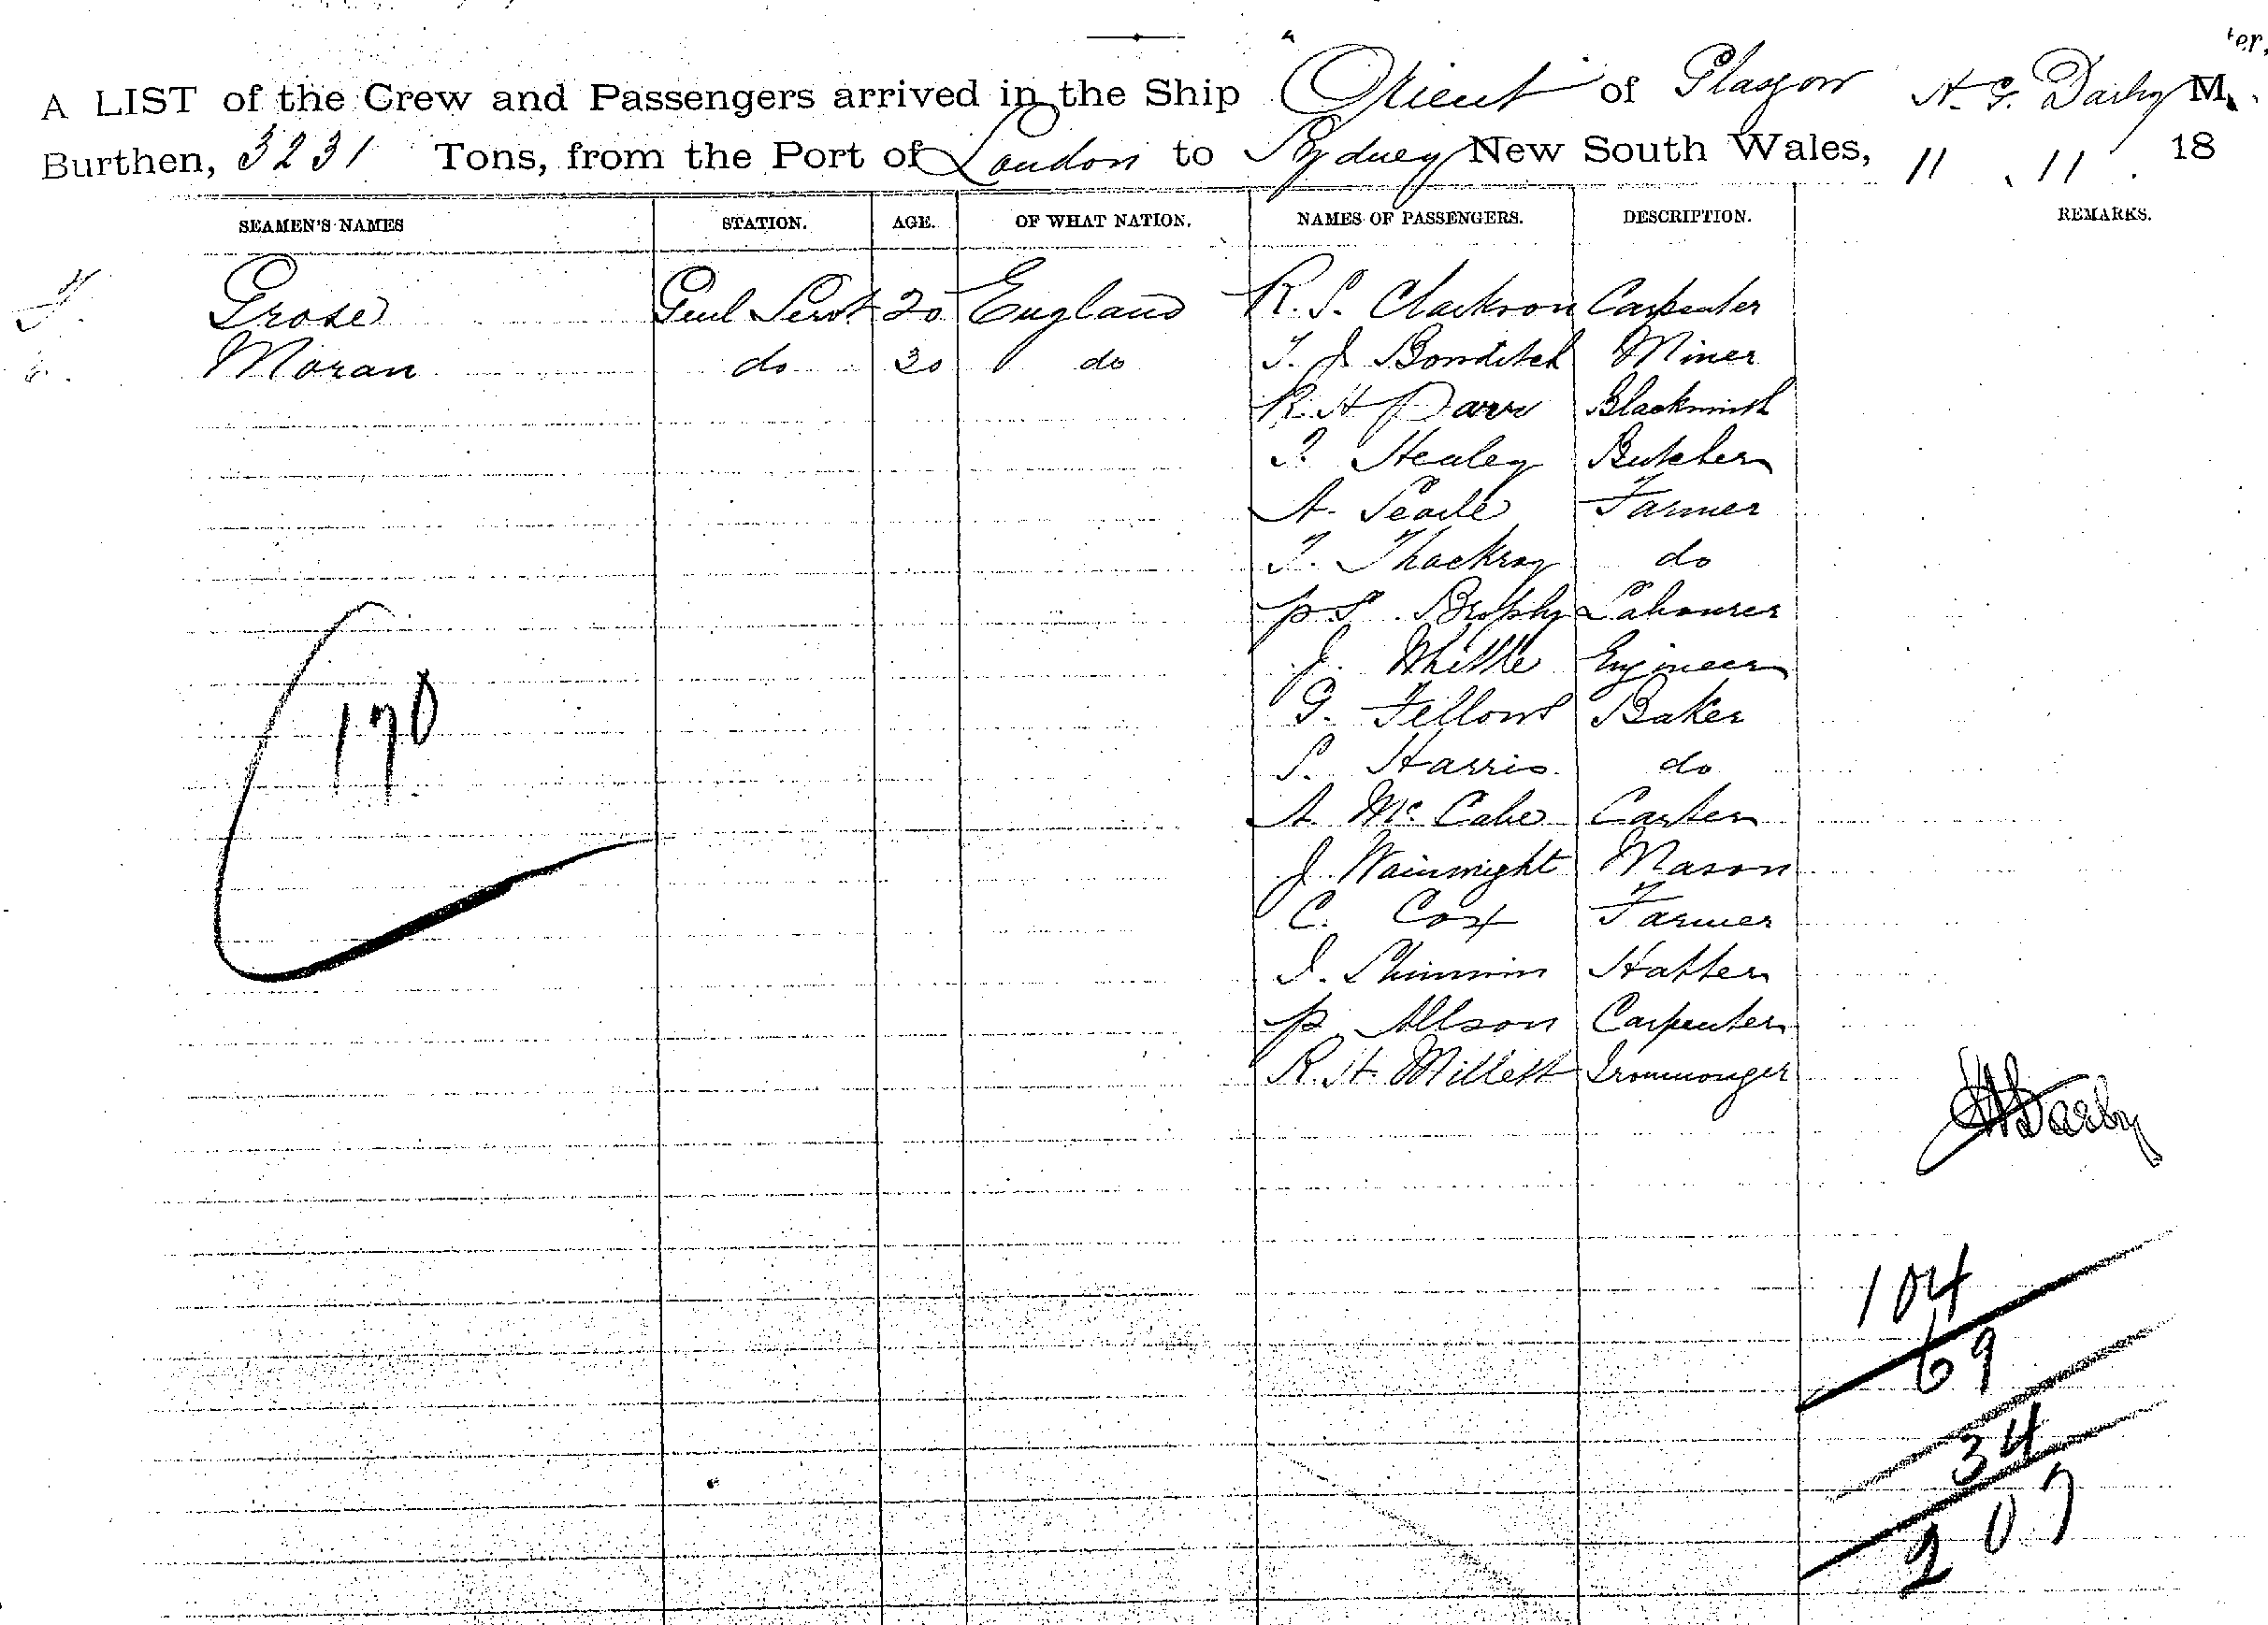 A LIST of the Crew and Passengers arrived in the Ship "Orient" of Glasgow H. G. Darby M
Burthen, 3231 Tons, from the Port of London to Sydney New South Wales, 11 . 11 . 18
SEAMEN'S NAMES STATION. AGE. OF WHAT NATION. NAMES OF PASSENGERS. DESCRIPTION. REMARKS.
Grose Genl Servt 20 England R. S. Clarkson Carpenter
Moran do 30 do T. J. Bowditch Miner
R. H Parr Blacksmith
T. Healey Butcher
A. Searle Farmer
T. Thackray do
P S Brophy Labourer
J. Whittle Engineer
G. Fellows Baker
S. Harris do
A. McCabe Carter
J Wainwright Mason
C. Cox Farmer
I. Shimmin Hatter
P. Allson Carpenter
R. H. Millett Ironmonger
170
Darby
104
69
34
207